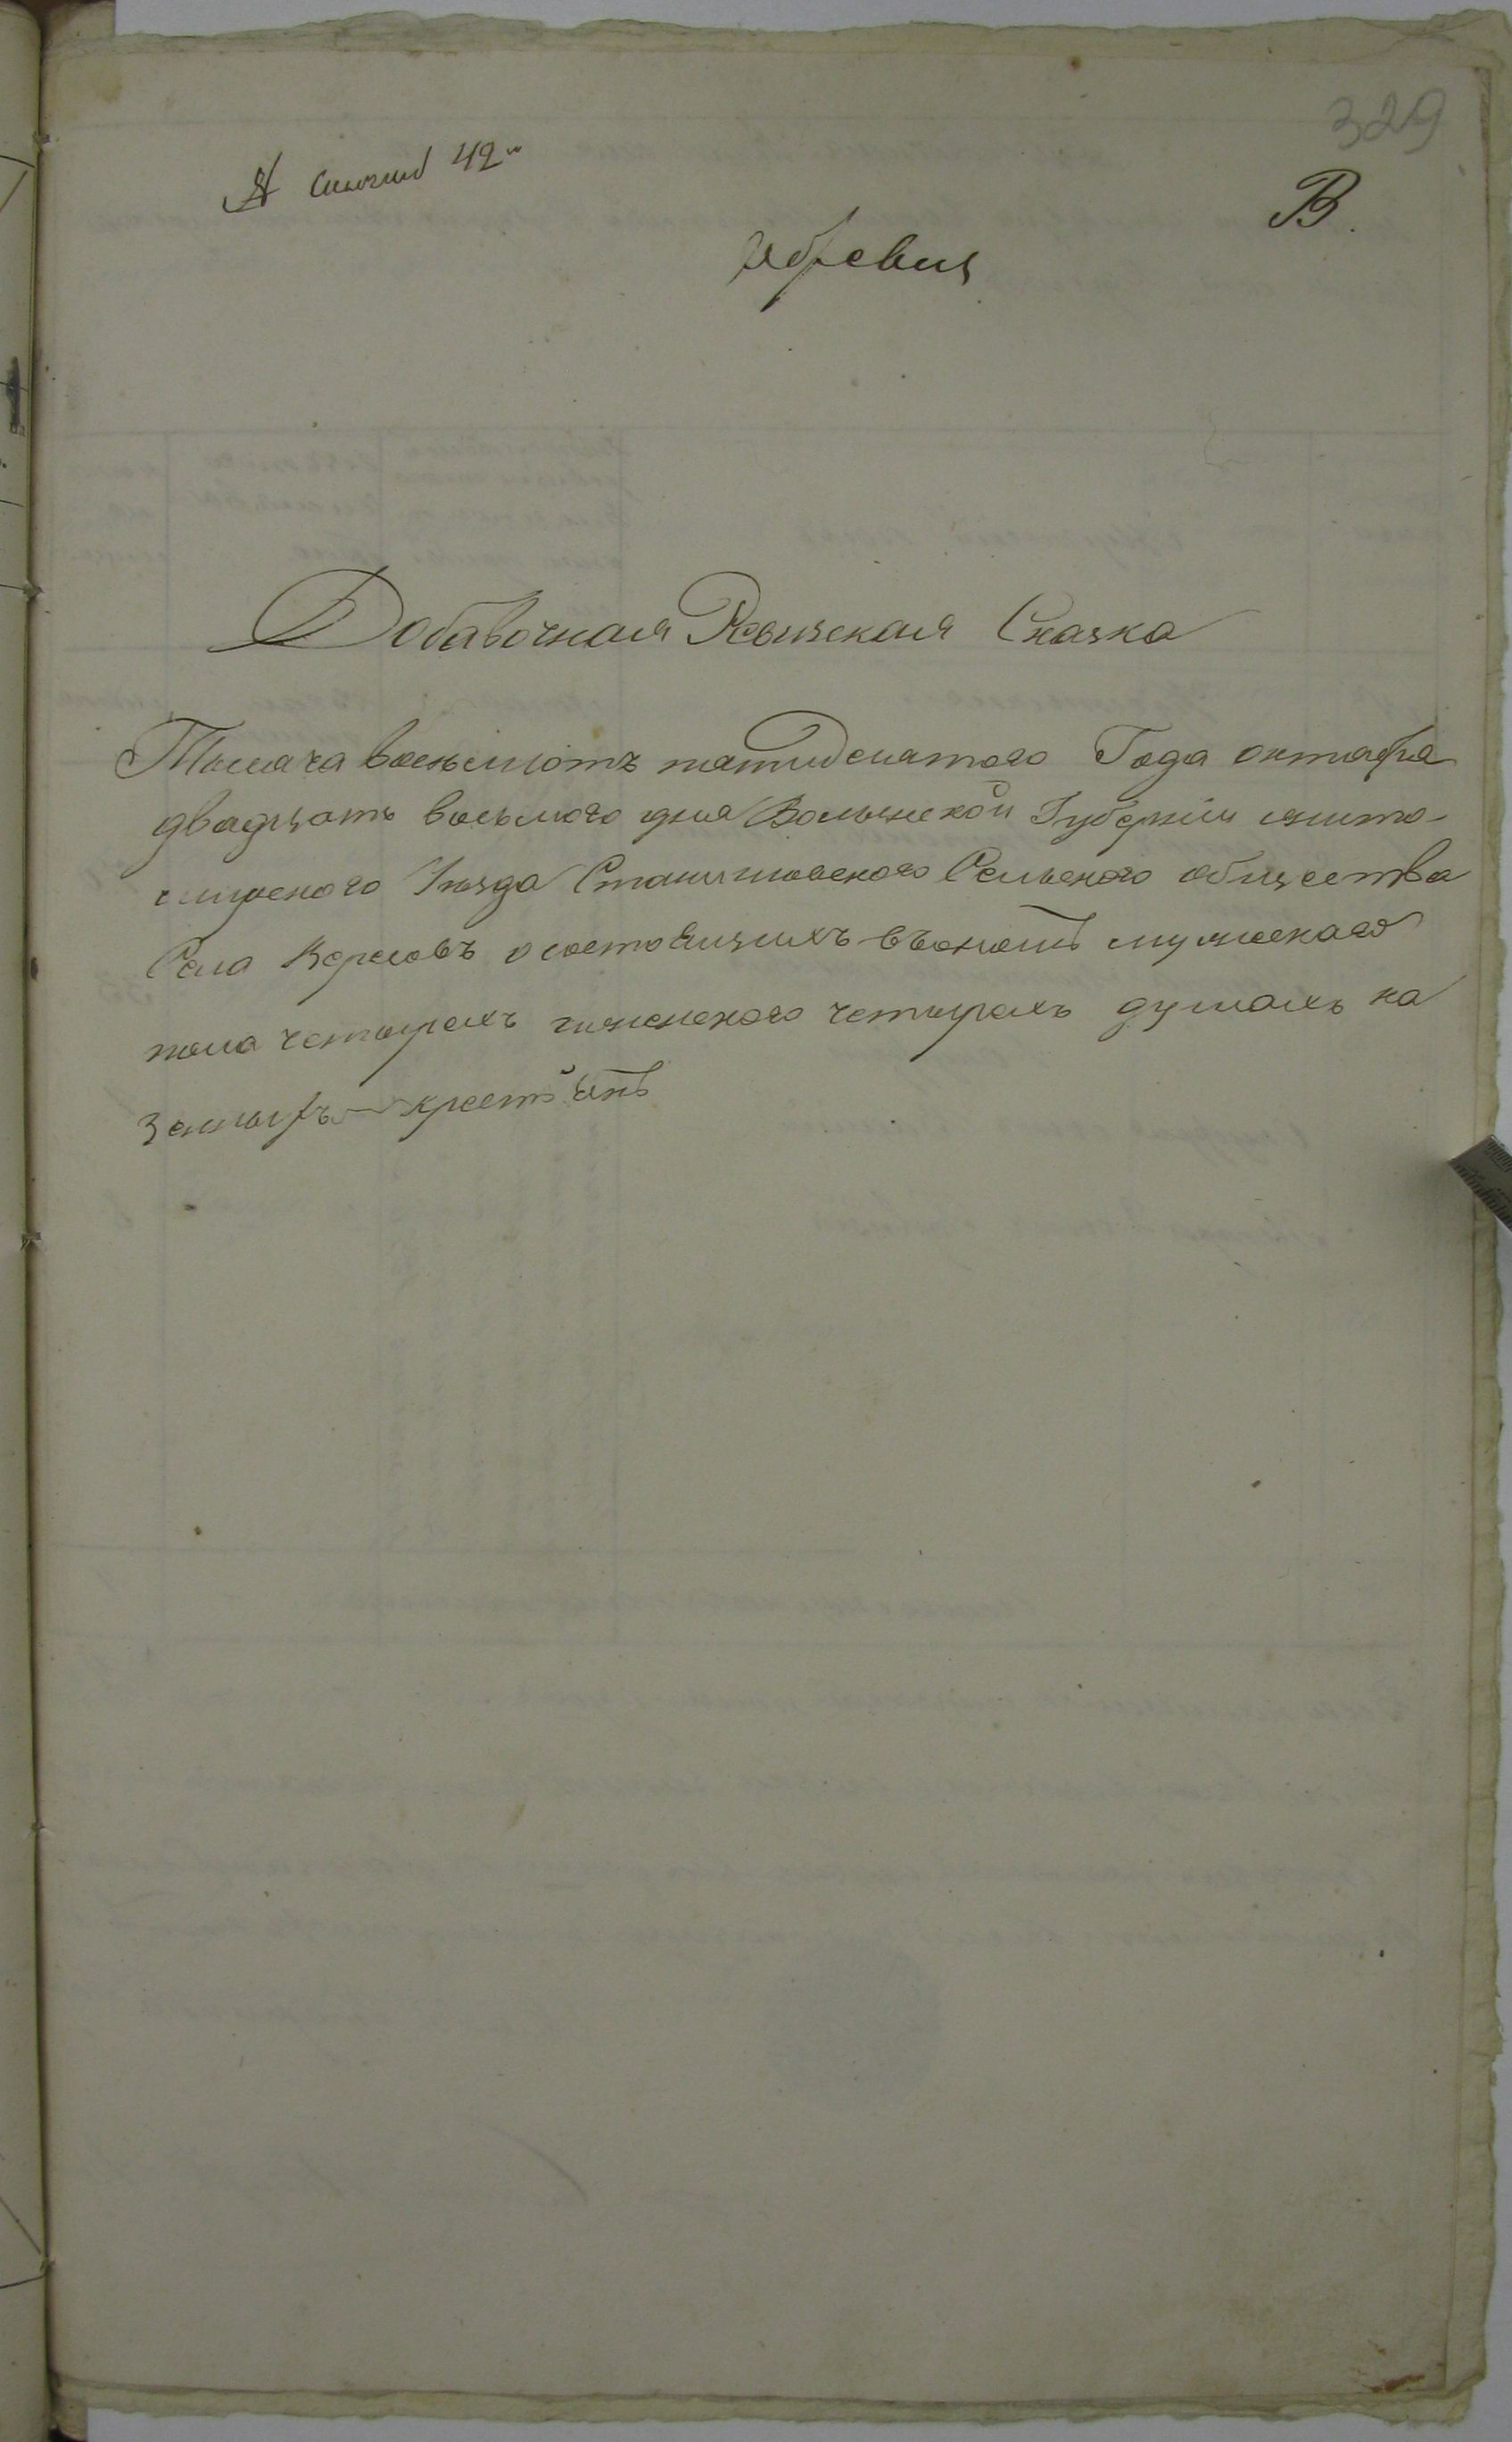 329
42
В.
Добавочная Ревизская Сказка
Тысяча восемьсотъ пятидесятого Года октября
двадцать восьмого дня Волынской Губерніи жито-
мирского Уезда Станишовского Сельского общества
Села Вересовъ о состоящихъ въ ономъ мужеского
пола четырехъ женского четырехъ душахъ ка
зенныхъ крестьянъ